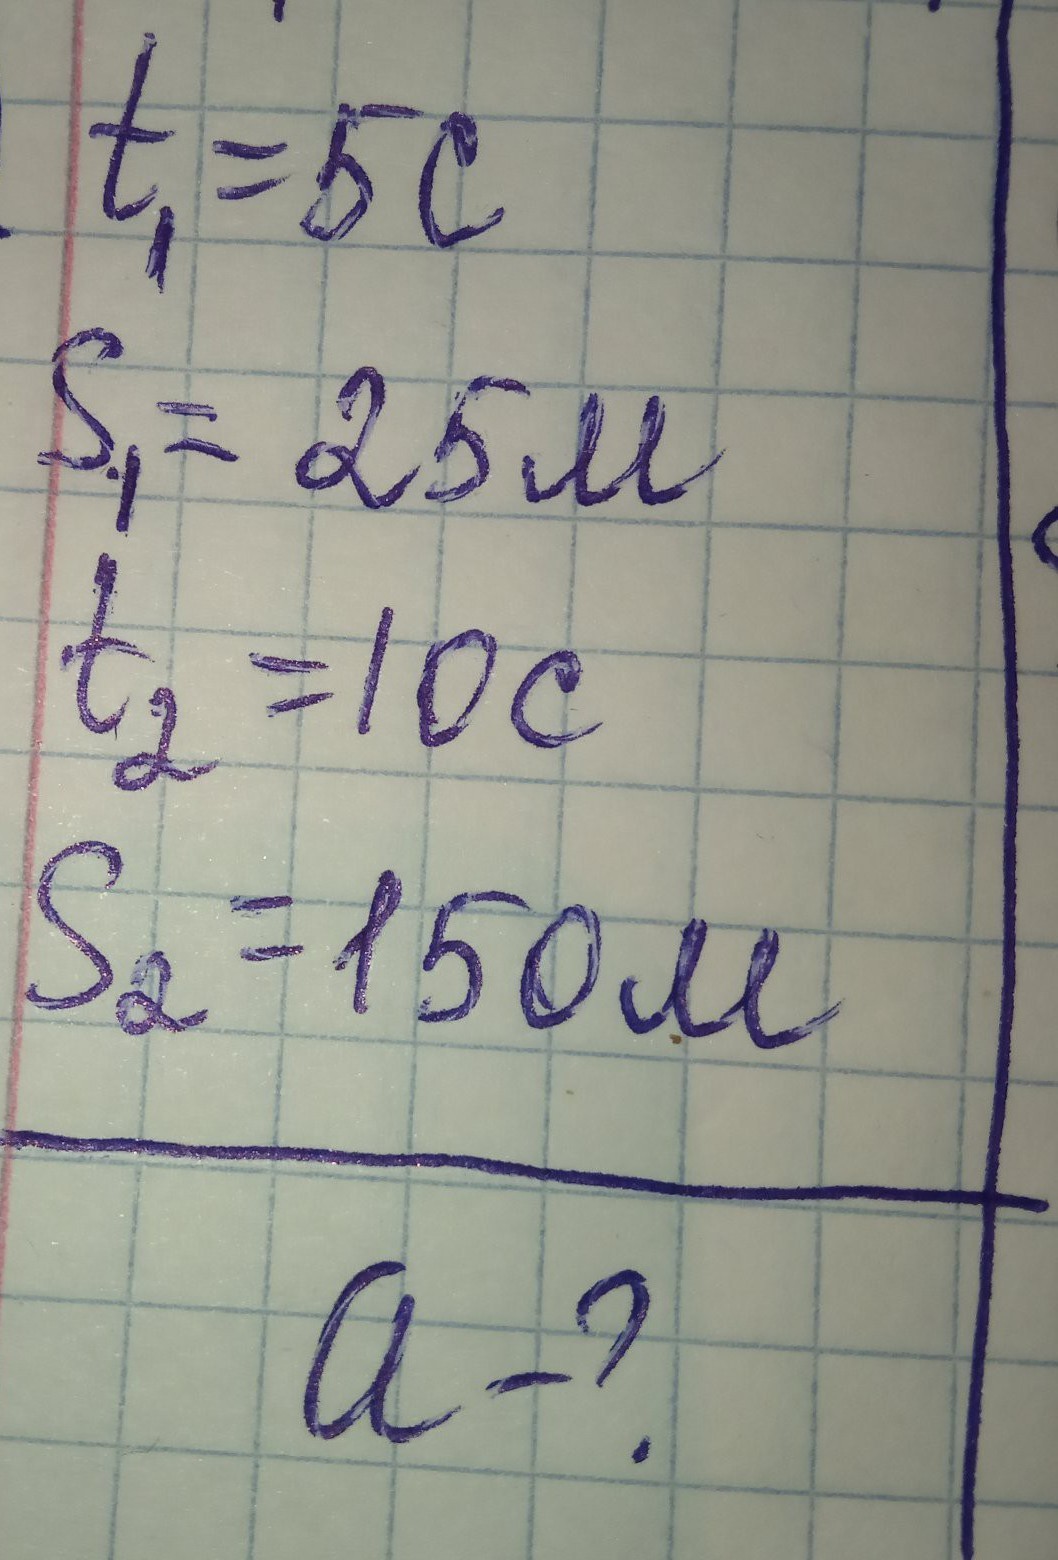 t₁ = 5 с
S₁ = 25 м
t₂ = 10 с
S₂ = 150 м
a - ?